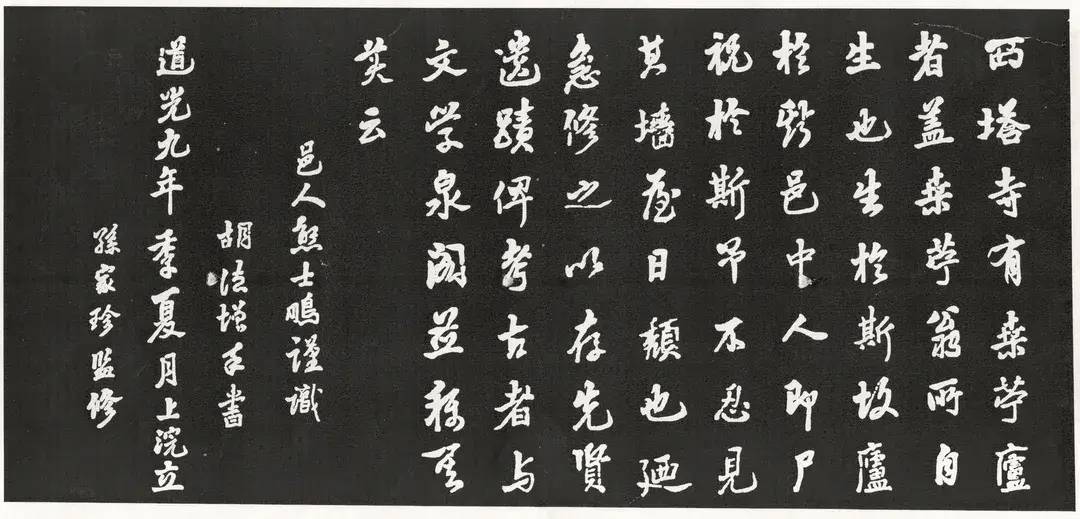 西塔寺有桑苧廬
者盖桑苧翁所自
生也生於斯故廬
於斯邑中人即尸
祝於斯予不忍見
其墻屋日頽也廼
急修之以存先賢
遺蹟俾考古者与
文学泉阁並稱
美云
邑人熊士鵬謹識
胡德增手書
道光九年季夏月上浣立
孫家珍監修